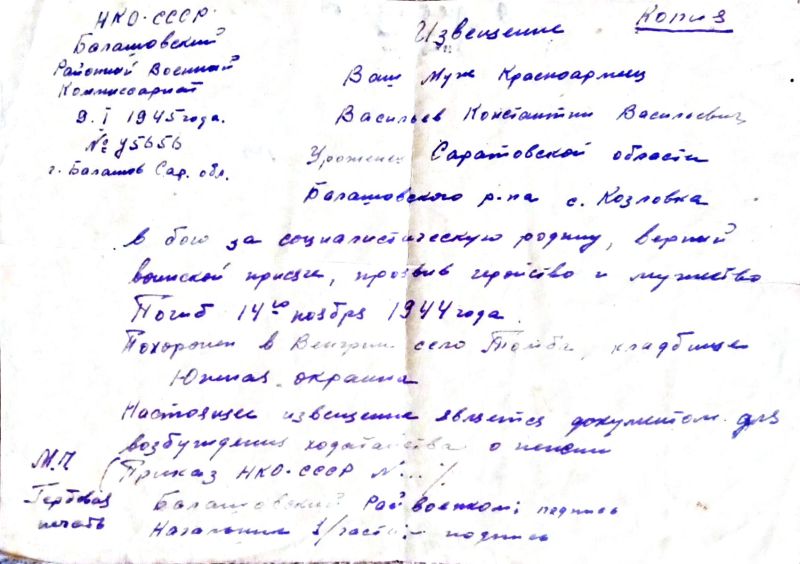 НКО-СССР
Балашовский
Районный Военный
Комиссариат
9. I 1945 года.
№ у5656
г. Балашов Сар. обл.
Копия
Извещение
Ваш муж Красноармеец
Васильев Константин Васильевич
Уроженец Саратовской области
Балашовского р-на с. Козловка
в бою за социалистическую родину, верный
воинской присяге, проявив геройство и мужество
Погиб 14го ноября 1944 года.
Похоронен в Венгрии село Томба, кладбище
Южная окраина
Настоящее извещение является документом для
возбуждения ходатайства о пенсии
(Приказ НКО-СССР N...)
М.П
Гербовая
печать
Балашовский Райвоенком: подпись
Начальник 1/части: подпись